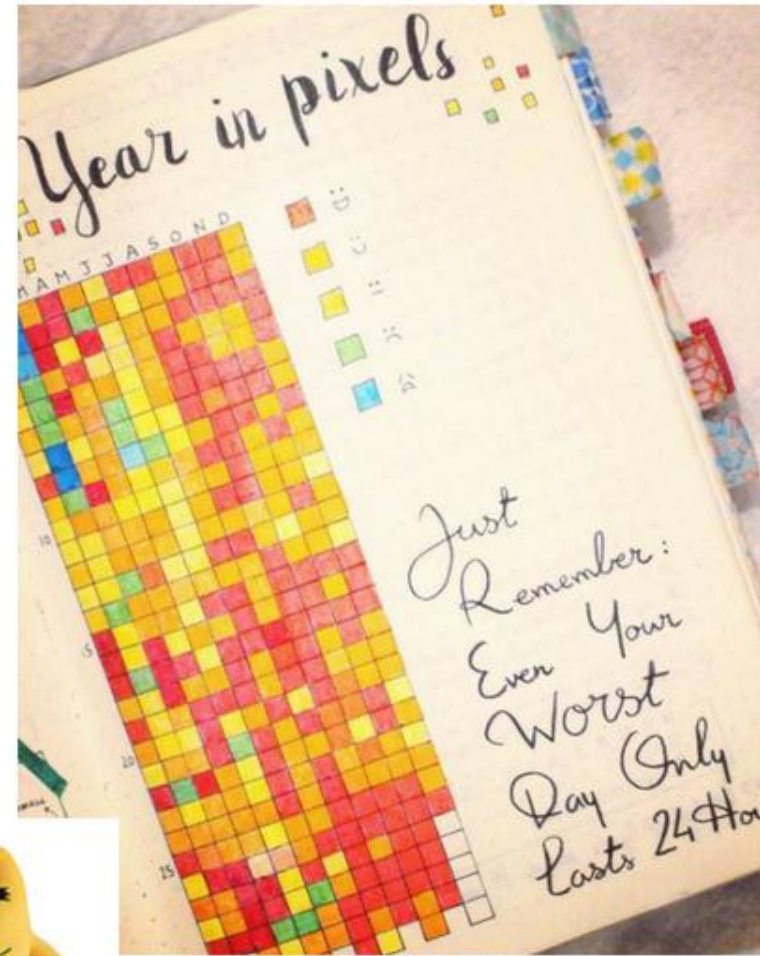 Year in pixels
A M J J A S O N D
10
15
20
25
Just
Remember:
Even Your
Worst
Day Only
Lasts 24 Hou